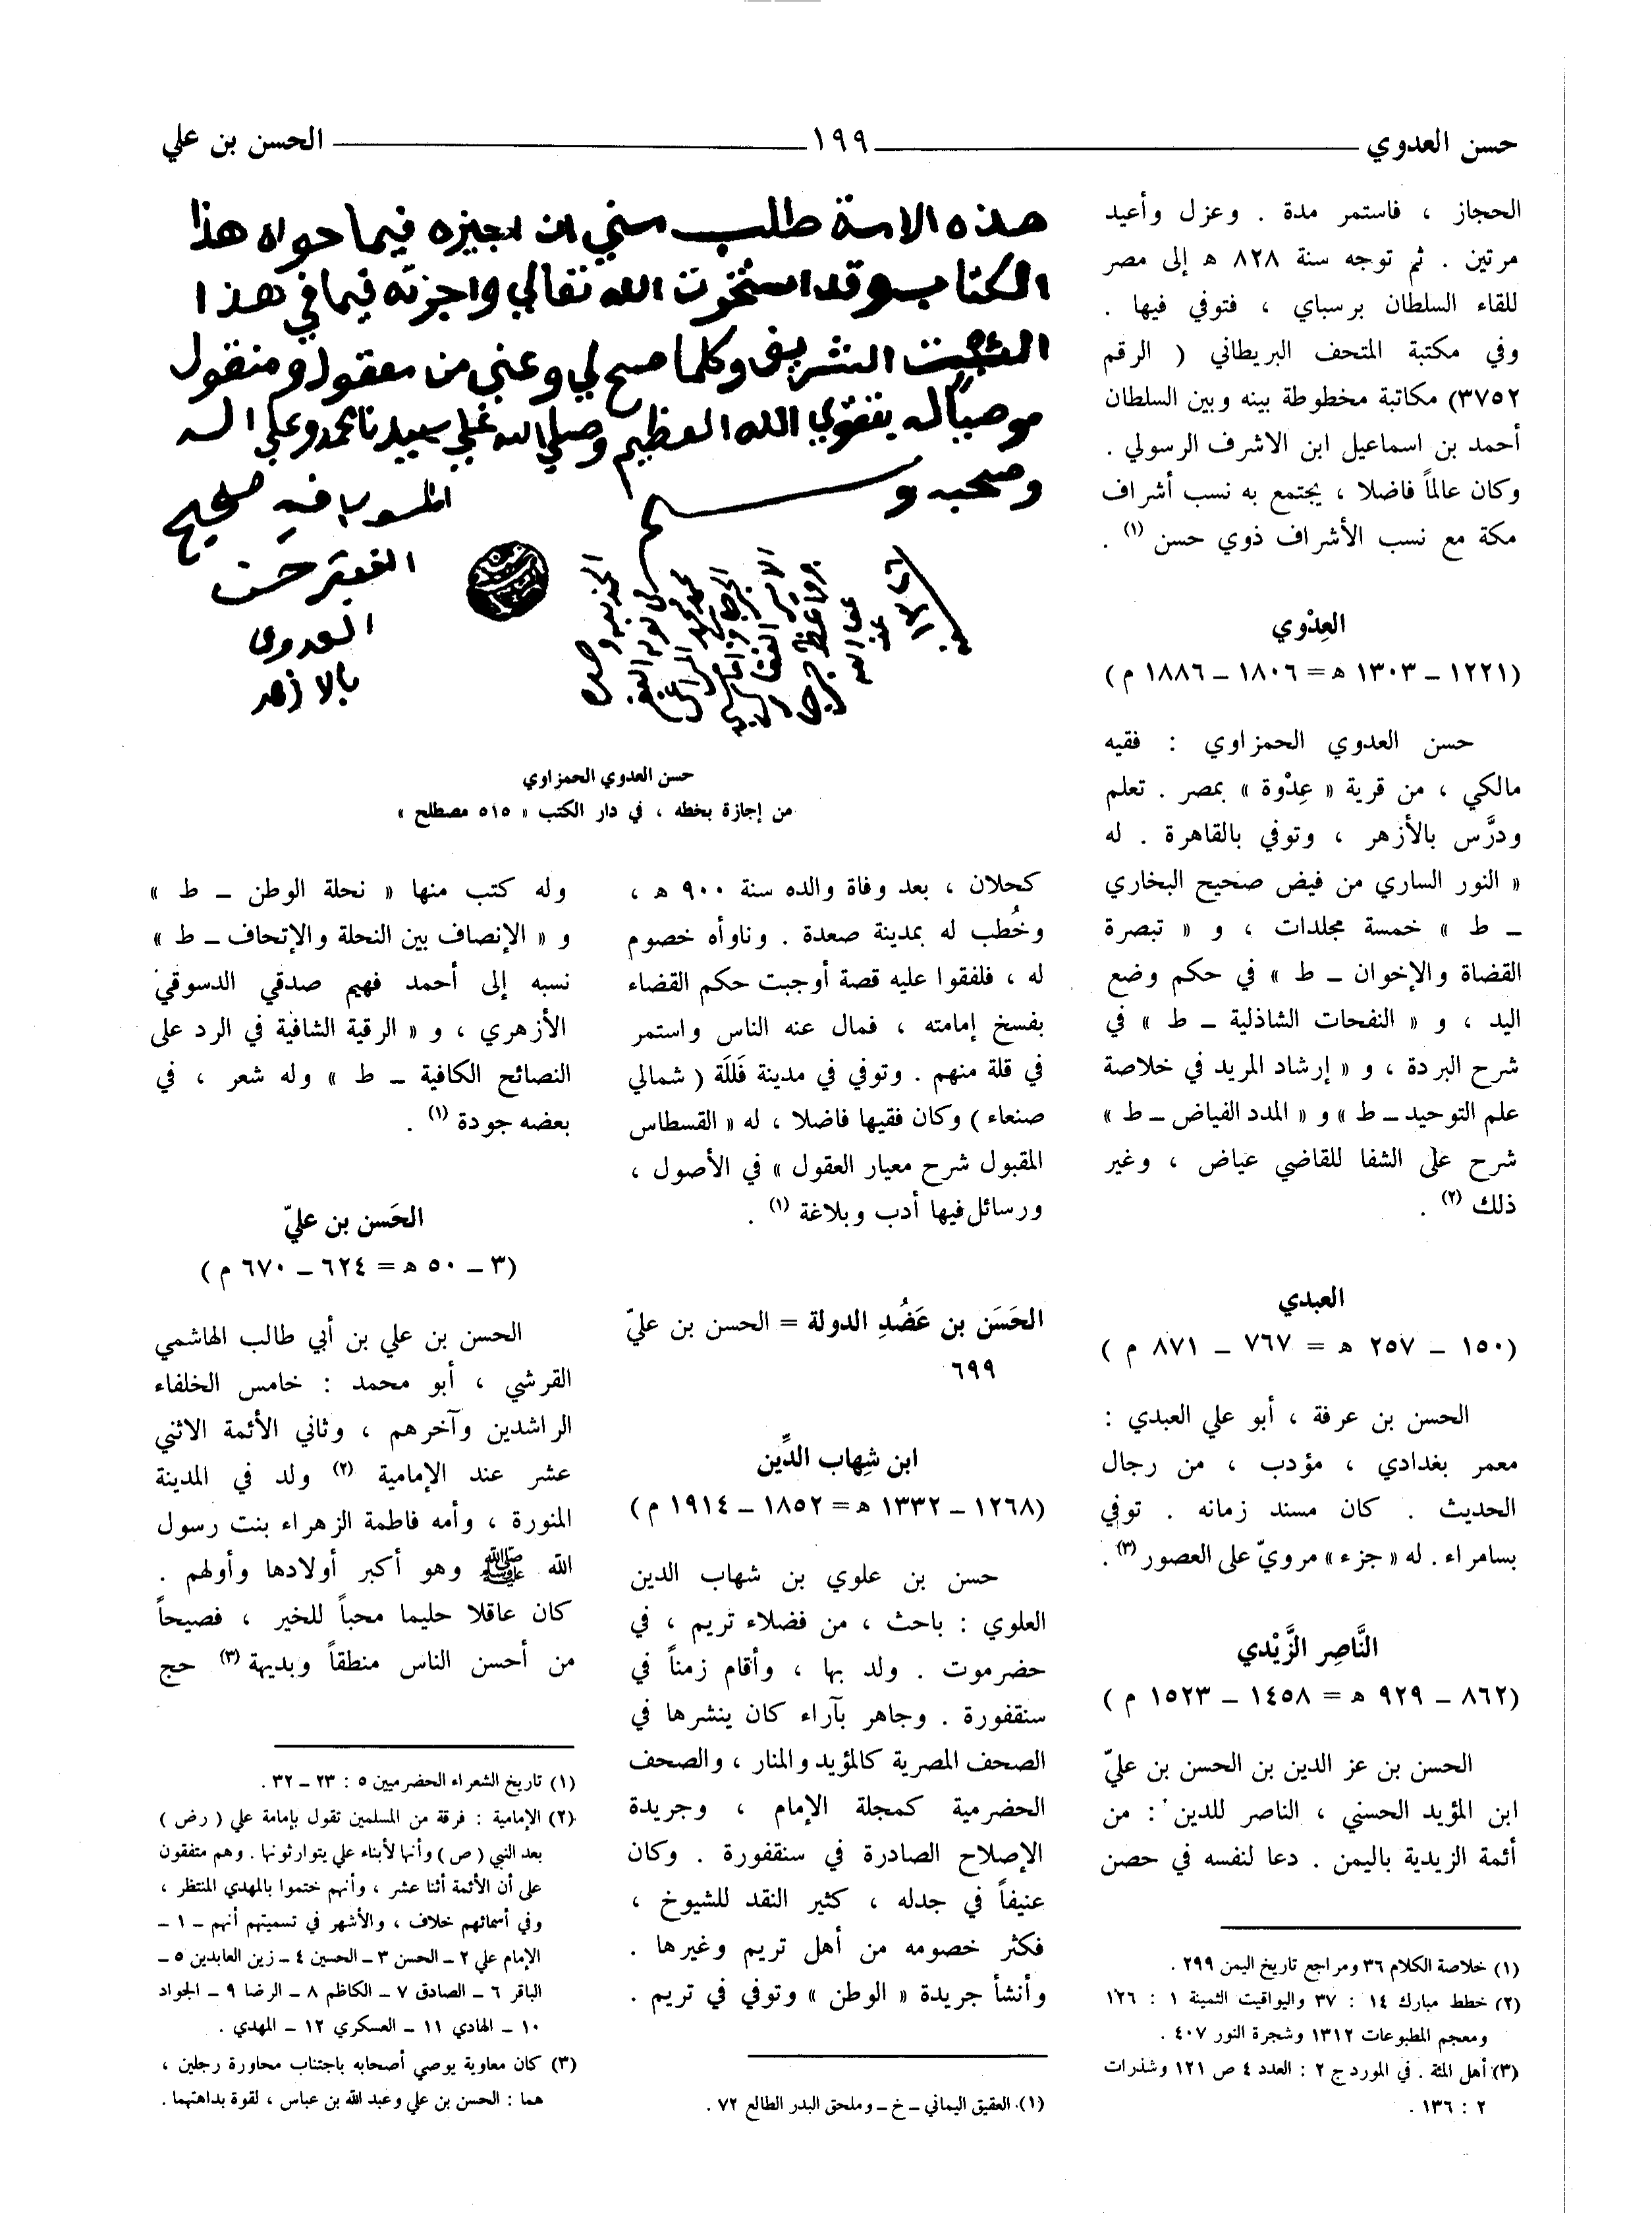 حسن العدوي ١٩٩ الحسن بن علي
الحجاز ، فاستمر مدة . وعزل وأعيد
مرتين . ثم توجه سنة ٨٢٨ ه إلى مصر
للقاء السلطان برسباي ، فتوفي فيها .
وفي مكتبة المتحف البريطاني ( الرقم
٣٧٥٢) مكاتبة مخطوطة بينه وبين السلطان
أحمد بن اسماعيل ابن الاشرف الرسولي .
وكان عالماً فاضلا ، يجتمع به نسب أشراف
مكة مع نسب الأشراف ذوي حسن (١) .
العِدْوي
(١٢٢١ – ١٣٠٣ ه = ١٨٠٦ – ١٨٨٦ م )
حسن العدوي الحمزاوي : فقيه
مالكي ، من قرية « عِدْوة » بمصر . تعلم
ودرَّس بالأزهر ، وتوفي بالقاهرة . له
« النور الساري من فيض صحيح البخاري
– ط » خمسة مجلدات ، و « تبصرة
القضاة والإخوان – ط » في حكم وضع
اليد ، و « النفحات الشاذلية – ط » في
شرح البردة ، و « إرشاد المريد في خلاصة
علم التوحيد – ط » و « المدد الفياض – ط »
شرح على الشفا للقاضي عياض ، وغير
ذلك (٢) .
العبدي
(١٥٠ – ٢٥٧ ه = ٧٦٧ – ٨٧١ م )
الحسن بن عرفة ، أبو علي العبدي :
معمر بغدادي ، مؤدب ، من رجال
الحديث . كان مسند زمانه . توفي
بسامراء . له « جزء » مرويّ على العصور (٣) .
النَّاصِر الزَّيْدي
(٨٦٢ – ٩٢٩ ه = ١٤٥٨ – ١٥٢٣ م )
الحسن بن عز الدين بن الحسن بن عليّ
ابن المؤيد الحسني ، الناصر للدين : من
أئمة الزيدية باليمن . دعا لنفسه في حصن
(١) خلاصة الكلام ٣٦ ومراجع تاريخ اليمن ٢٩٩ .
(٢) خطط مبارك ١٤ : ٣٧ واليواقيت الثمينة ١ : ١٢٦
ومعجم المطبوعات ١٣١٢ وشجرة النور ٤٠٧ .
(٣) أهل المئة . في المورد ج ٢ : العدد ٤ ص ١٢١ وشذرات
٢ : ١٣٦ .
هذه الامة طلب مني ان اجيزه فيما حواه هذا
الكتاب وقد استخرت الله تعالي واجزته فيما في هذا
الثبت الشريف وكلما صح لي وعني من معقول ومنقول
موصياً له بتقوي الله العظيم وصلي الله علي سيدنا محمد وعلي اله
وصحبه وسلم
المنسوب فيه صحيح
الفقير حسن
العدوي
بالازهر
حسن العدوي الحمزاوي
من إجازة بخطه ، في دار الكتب « ٥١٥ مصطلح »
كحلان ، بعد وفاة والده سنة ٩٠٠ ه ،
وخُطب له بمدينة صعدة . وناوأه خصوم
له ، فلفقوا عليه قصة أوجبت حكم القضاء
بفسخ إمامته ، فمال عنه الناس واستمر
في قلة منهم . وتوفي في مدينة فَللَة ( شمالي
صنعاء ) وكان فقيها فاضلا ، له « القسطاس
المقبول شرح معيار العقول » في الأصول ،
ورسائل فيها أدب وبلاغة (١) .
الحَسَن بن عَضُدِ الدولة = الحسن بن عليّ
٦٩٩
ابن شِهاب الدِّين
(١٢٦٨ – ١٣٣٢ ه = ١٨٥٢ – ١٩١٤ م )
حسن بن علوي بن شهاب الدين
العلوي : باحث ، من فضلاء تريم ، في
حضرموت . ولد بها ، وأقام زمناً في
سنقفورة . وجاهر بآراء كان ينشرها في
الصحف المصرية كالمؤيد والمنار ، والصحف
الحضرمية كمجلة الإمام ، وجريدة
الإصلاح الصادرة في سنقفورة . وكان
عنيفاً في جدله ، كثير النقد للشيوخ ،
فكثر خصومه من أهل تريم وغيرها .
وأنشأ جريدة « الوطن » وتوفي في تريم .
(١) العقيق اليماني – خ – وملحق البدر الطالع ٧٢ .
وله كتب منها « نحلة الوطن – ط »
و « الإنصاف بين النحلة والإتحاف – ط »
نسبه إلى أحمد فهيم صدقي الدسوقي
الأزهري ، و « الرقية الشافية في الرد على
النصائح الكافية – ط » وله شعر ، في
بعضه جودة (١) .
الحَسن بن عليّ
(٣ – ٥٠ ه = ٦٢٤ – ٦٧٠ م )
الحسن بن علي بن أبي طالب الهاشمي
القرشي ، أبو محمد : خامس الخلفاء
الراشدين وآخرهم ، وثاني الأئمة الاثني
عشر عند الإمامية (٢) ولد في المدينة
المنورة ، وأمه فاطمة الزهراء بنت رسول
الله ﷺ وهو أكبر أولادها وأولهم .
كان عاقلا حليما محباً للخير ، فصيحاً
من أحسن الناس منطقاً وبديهة (٣) حج
(١) تاريخ الشعراء الحضرميين ٥ : ٢٣ – ٣٢ .
(٢) الإمامية : فرقة من المسلمين تقول بإمامة علي ( رض )
بعد النبي ( ص ) وأنها لأبناء علي يتوارثونها . وهم متفقون
على أن الأئمة أثنا عشر ، وأنهم ختموا بالمهدي المنتظر ،
وفي أسمائهم خلاف ، والأشهر في تسميتهم أنهم – ١ –
الإمام علي ٢ – الحسن ٣ – الحسين ٤ – زين العابدين ٥ –
الباقر ٦ – الصادق ٧ – الكاظم ٨ – الرضا ٩ – الجواد
١٠ – الهادي ١١ – العسكري ١٢ – المهدي .
(٣) كان معاوية يوصي أصحابه باجتناب محاورة رجلين ،
هما : الحسن بن علي وعبد الله بن عباس ، لقوة بداهتهما .